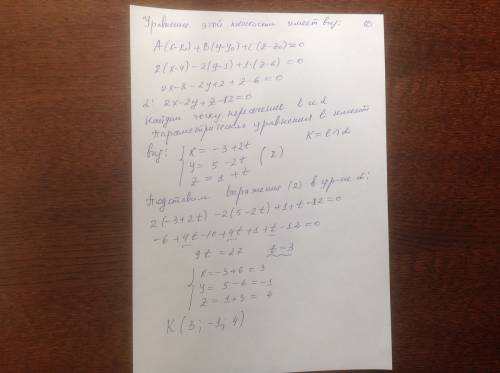 Уравнение этой плоскости имеет вид:
A(x-x₀) + B(y-y₀) + C(z-z₀) = 0
2(x-4) - 2(y-1) + 1·(z-6) = 0
2x - 8 - 2y + 2 + z - 6 = 0
α: 2x - 2y + z - 12 = 0
Найдем точку пересечения ℓ и α
Параметрические уравнения ℓ имеют
вид: { x = -3 + 2t K = ℓ ∩ α
y = 5 - 2t (2)
z = 1 + t
Подставим выражение (2) в ур-ие α:
2(-3+2t) - 2(5-2t) + 1 + t - 12 = 0
-6 + 4t - 10 + 4t + 1 + t - 12 = 0
9t = 27 t = 3
{ x = -3 + 6 = 3
y = 5 - 6 = -1
z = 1 + 3 = 4
K (3; -1; 4)